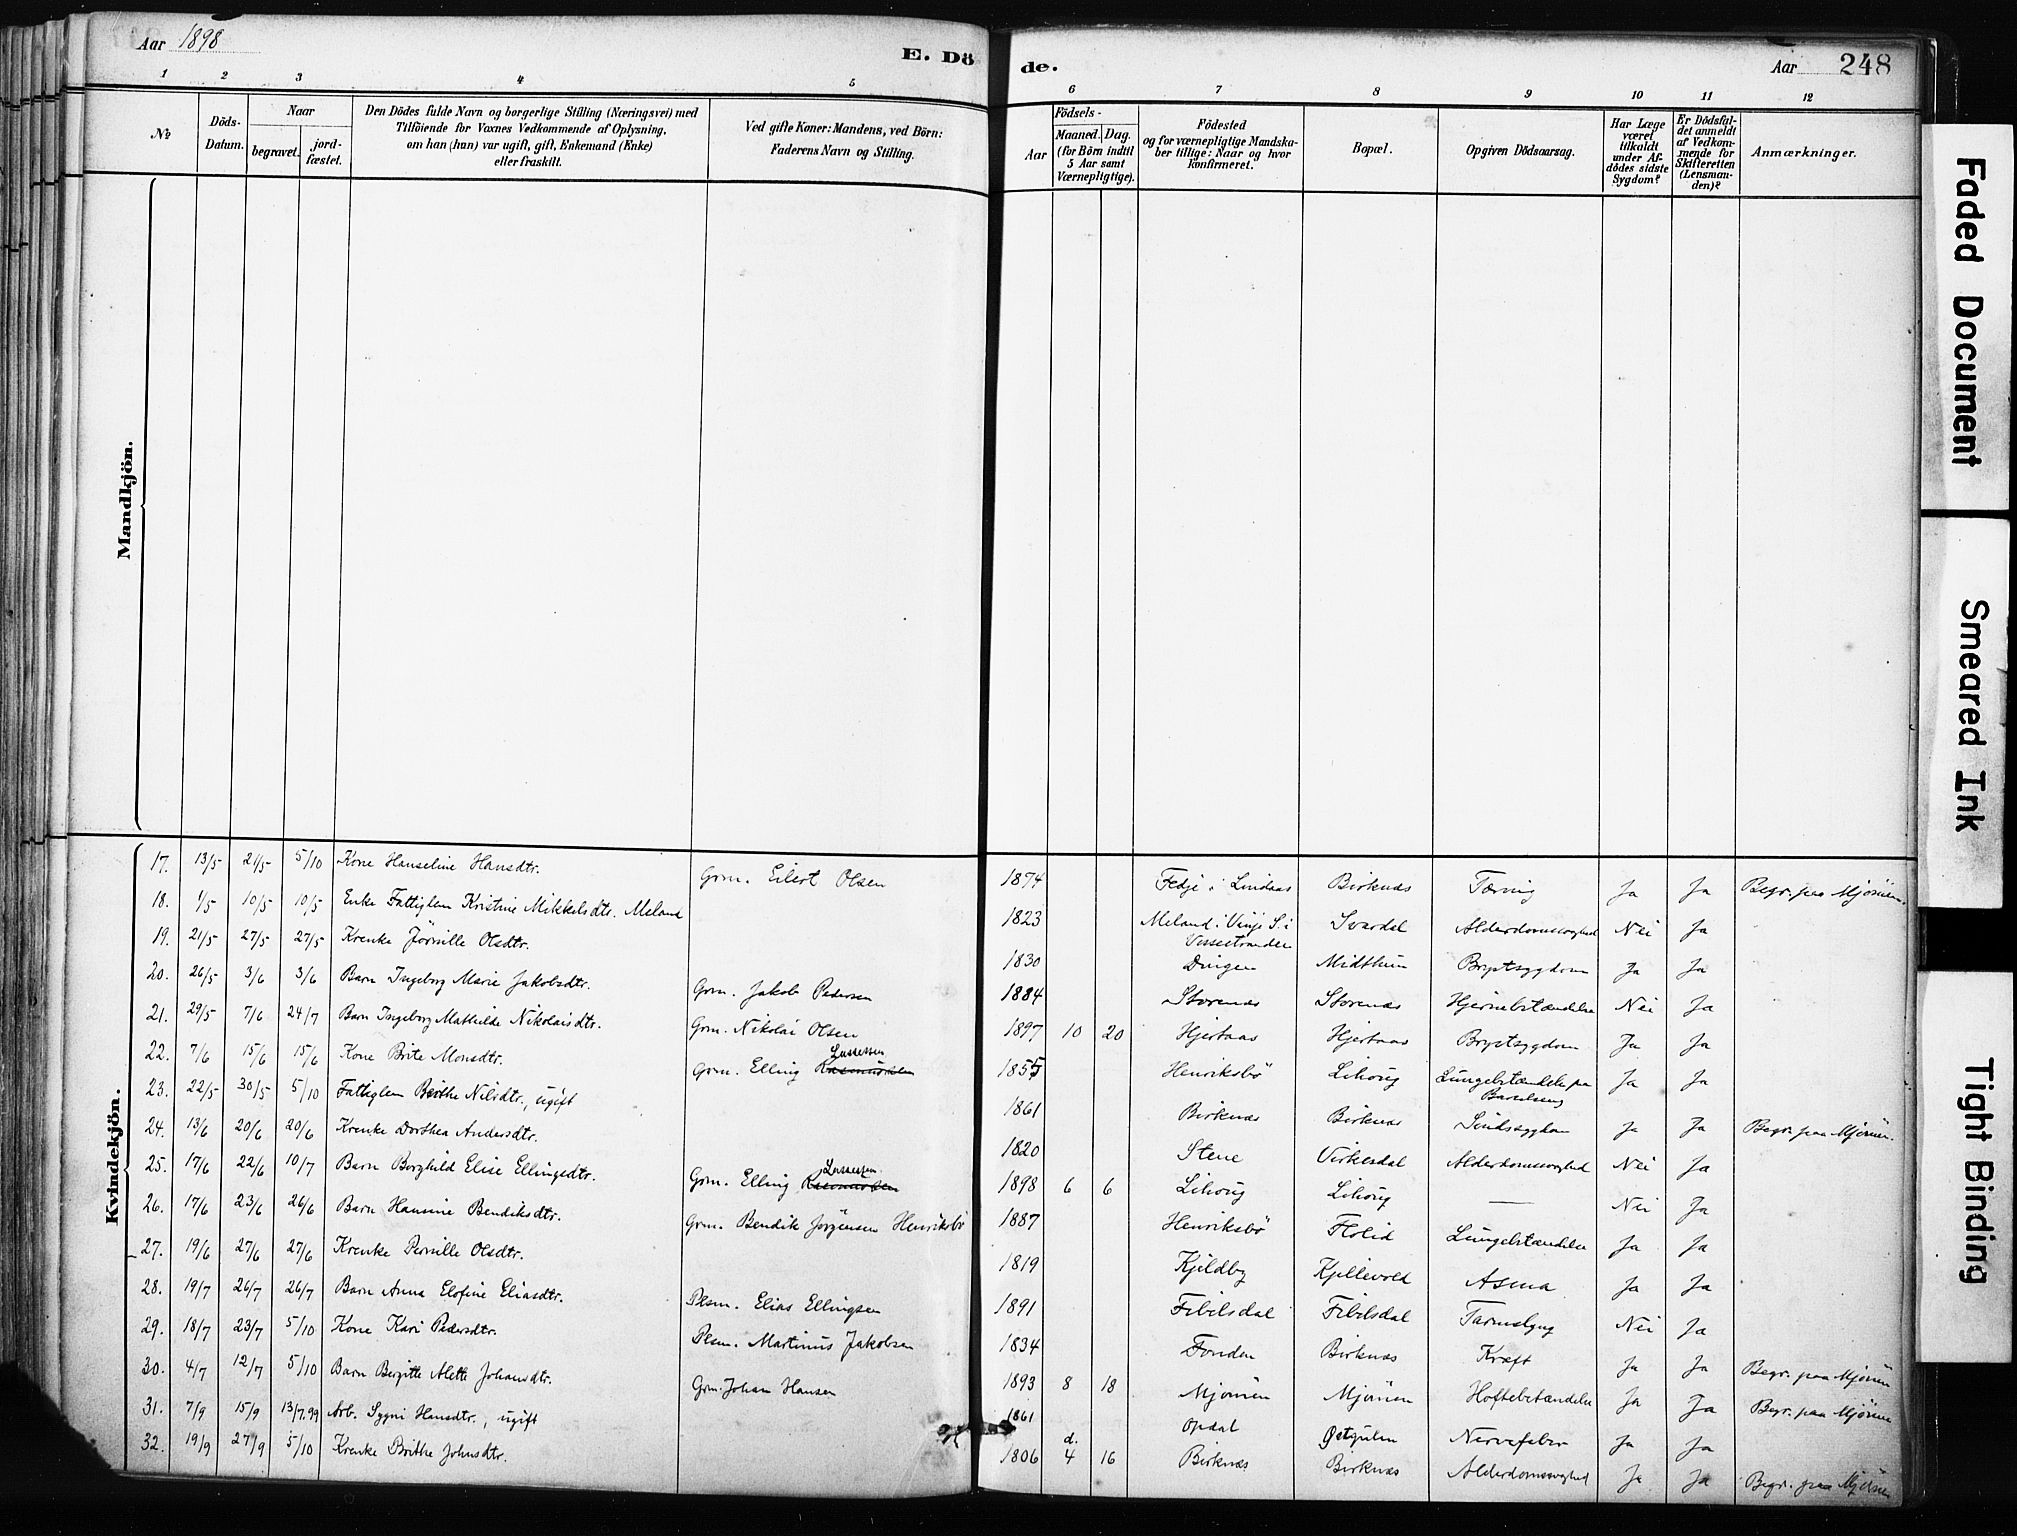 Aar 1898
E. Dö
de.
Aar 248
1 2 3 4 5 6 7 8 9 10 11 12
№
Döds-Datum.
Naar
begravet.
jord-fæstet.
Den Dödes fulde Navn og borgerlige Stilling (Næringsvei) med
Tilföiende for Voxnes Vedkommende af Oplysning,
om han (hun) var ugift, gift, Enkemand (Enke)
eller fraskilt.
Ved gifte Koner: Mandens, ved Börn:
Faderens Navn og Stilling.
Födsels-
Aar
Maaned. Dag.
(for Börn indtil
5 Aar samt
Værnepligtige).
Födested
og for værnepligtige Mandska-
ber tillige: Naar og hvor
konfirmeret.
Bopæl.
Opgiven Dödsaarsag.
Har Læge
været
tilkaldt
under Af-
dödes sidste
Sygdom?
Er Dödsfal-
det anmeldt
af Vedkom-
mende for
Skifteretten
(Lensman-
den)?
Anmærkninger.
Mandkjön.
Kvindekjön.
17. 13/5 21/5 5/10 Kone Hanseline Hansdtr. Grm. Eilert Olsen 1874 Fedje i Lindaas Birknæs Tæring Ja Ja Begr. paa Mjömen.
18. 1/5 10/5 10/5 Enke Fattiglem Kristine Mikkelsdtr. Meland 1823 Meland i Vinje S. i Vossestranden Svardal Alderdomssvaghed Nei Ja
19. 21/5 27/5 27/5 Krenke Jörnille Olsdtr. 1830 Dingen Midthun Brystsygdom Ja Ja
20. 26/5 3/6 3/6 Barn Ingeborg Marie Jakobsdtr. Grm. Jakob Pedersen 1884 Storenæs Storenæs Hjernebetændelse Nei Ja
21. 29/5 7/6 24/7 Barn Ingeborg Mathilde Nikolaisdtr. Grm. Nikolai Olsen 1897 10 20 Hjertaas Hjertaas Brystsygdom Ja Ja
22. 7/6 15/6 15/6 Kone Brite Monsdtr. Grm. Elling Lassessen 1855 Henriksbö Lihoug Lungebetændelse paa Barselseng Ja Ja
23. 22/5 30/5 5/10 Fattiglem Berthe Nilsdtr., ugift 1861 Birknæs Birknæs Sindssygdom Ja Ja Begr. paa Mjömen.
24. 13/6 20/6 20/6 Krenke Dorthea Andersdtr. 1820 Stene Virkesdal Alderdomssvaghed Nei Ja
25. 17/6 22/6 10/7 Barn Borghild Elise Ellingsdtr. Grm. Elling Lassessen 1898 6 6 Lihoug Lihoug — Nei Ja
26. 17/6 23/6 26/6 Barn Hansine Bendiksdtr. Grm. Bendik Jörgensen Henriksbö 1887 Henriksbö Flolid Lungebetændelse Ja Ja
27. 19/6 27/6 27/6 Krenke Pernille Olsdtr. 1819 Kjeldby Kjellevold Asma Ja Ja
28. 19/7 26/7 26/7 Barn Anna Elofine Eliasdtr. Plsm. Elias Ellingsen 1891 Fibilsdal Fibilsdal Tarmslyng Nei Ja
29. 18/7 23/7 5/10 Kone Kari Pedersdtr. Plsm. Martinus Jakobsen 1834 Fonden Birknæs Kræft Ja Ja Begr. paa Mjömen
30. 4/7 12/7 5/10 Barn Bergitte Alette Johansdtr. Grm. Johan Hansen 1893 8 18 Mjömen Mjömen Hoftebetændelse Ja Ja Begr. paa Mjömen
31. 7/9 15/9 13/7.99 Arb. Sygni Hansdtr., ugift 1861 Opdal Østgulen Nervefeber Ja Ja
32. 19/9 27/9 5/10 Krenke Brithe Johnsdtr. 1806 d. 4 16 Birknæs Birknæs Alderdomssvaghed Ja Ja Begr. paa Mjömen
Faded Document
Smeared Ink
Tight Binding